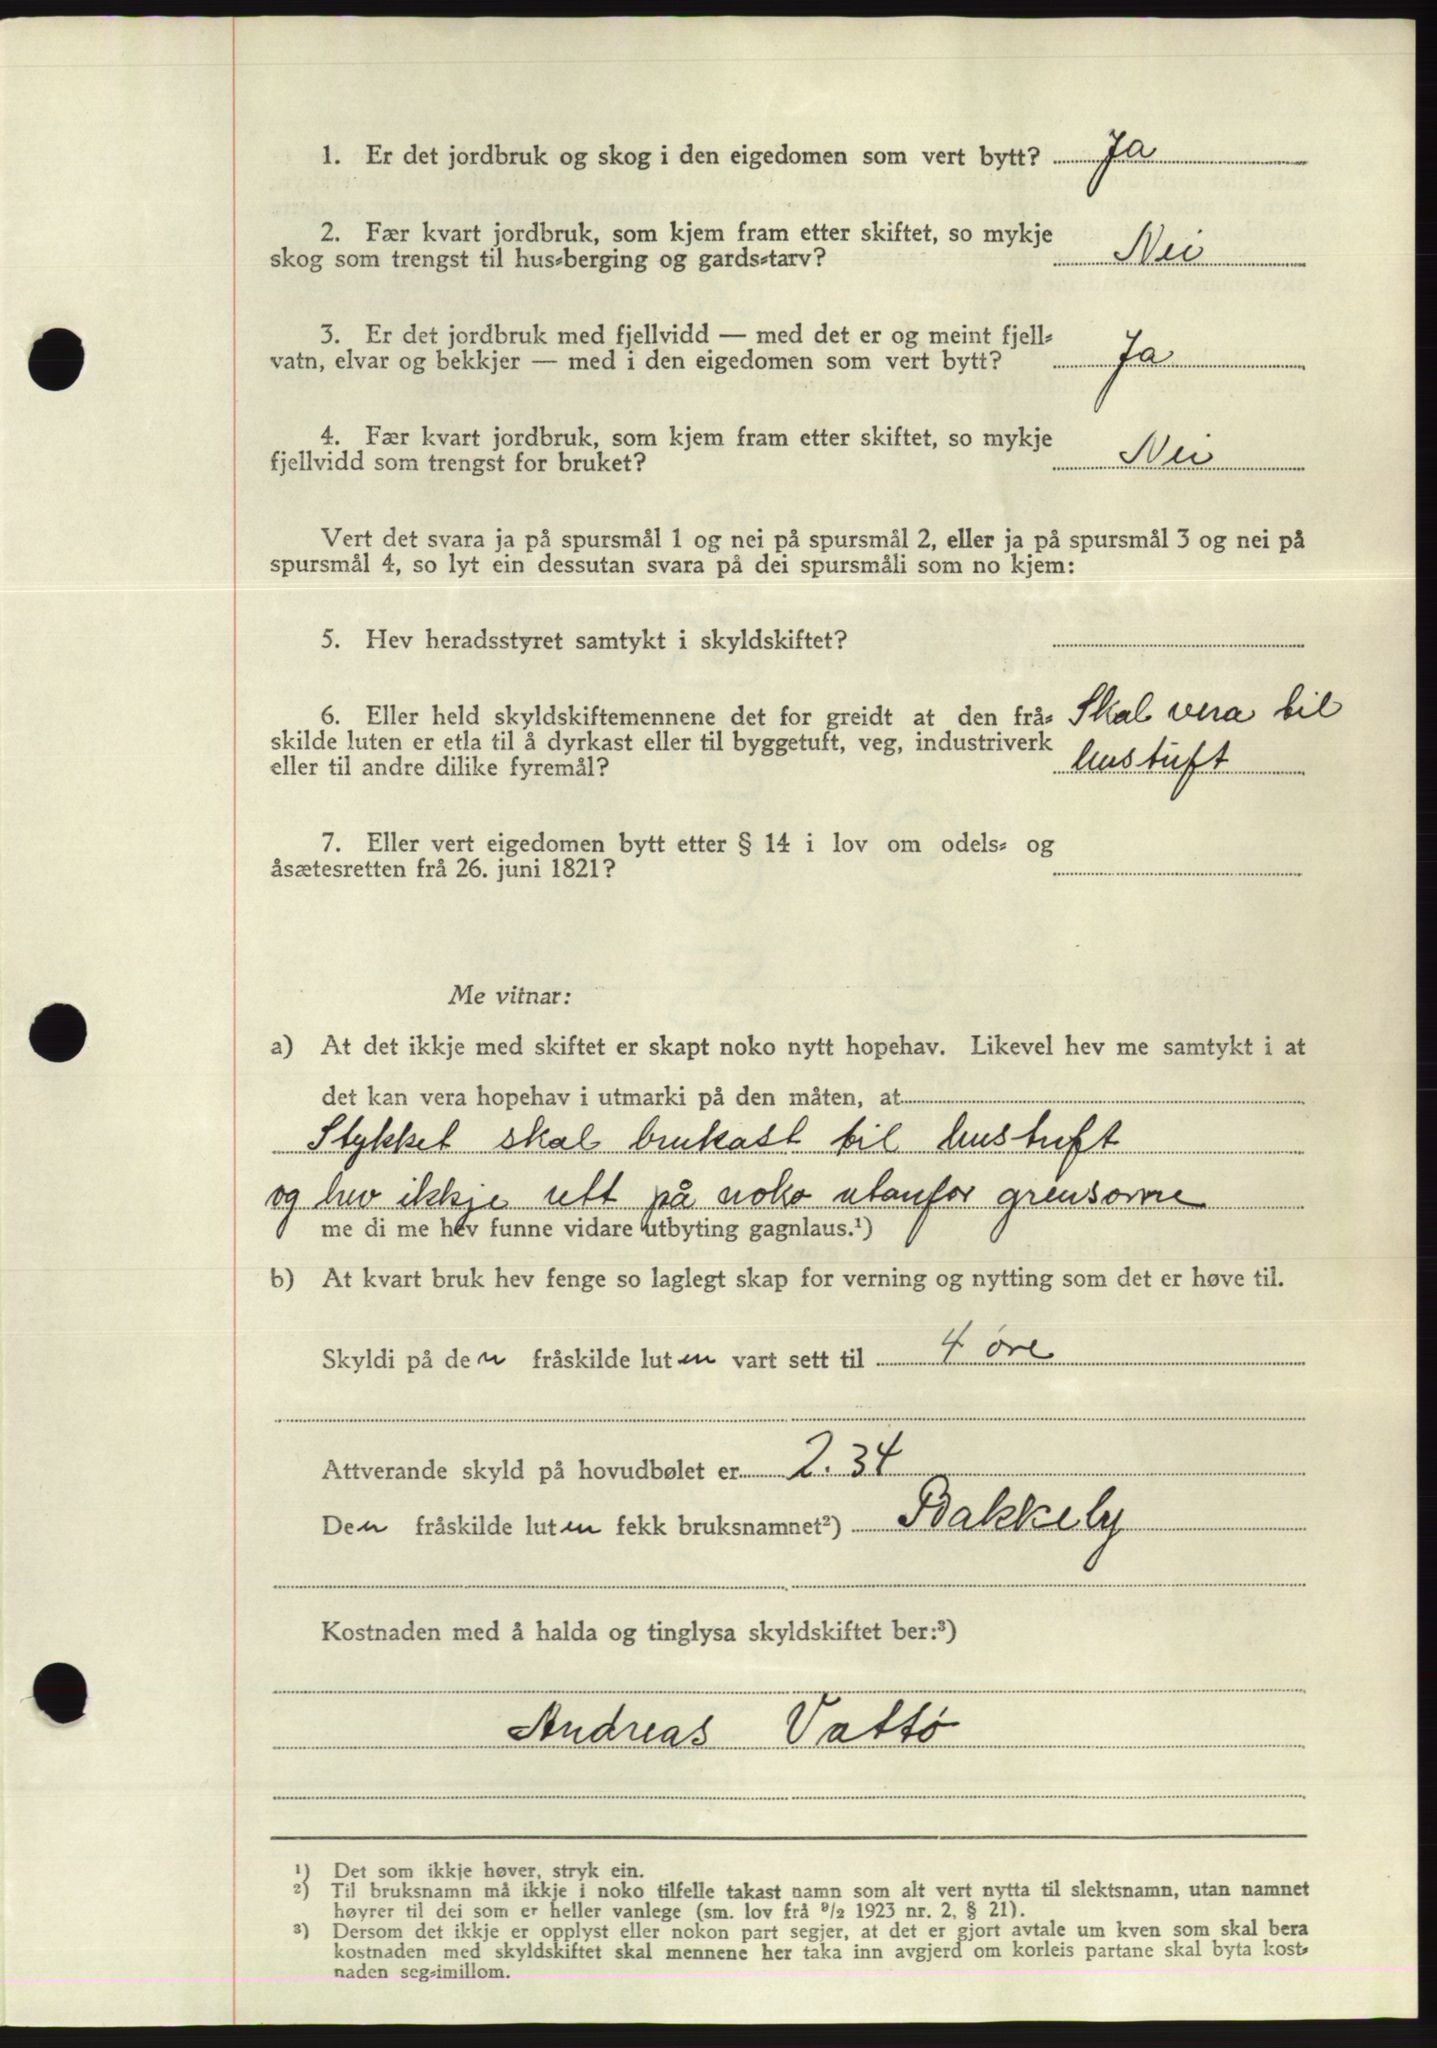 1. Er det jordbruk og skog i den eigedomen som vert bytt? Ja
2. Fær kvart jordbruk, som kjem fram etter skiftet, so mykje
skog som trengst til hus-berging og gards-tarv? Nei
3. Er det jordbruk med fjellvidd — med det er og meint fjell-
vatn, elvar og bekkjer — med i den eigedomen som vert bytt? Ja
4. Fær kvart jordbruk, som kjem fram etter skiftet, so mykje
fjellvidd som trengst for bruket? Nei
Vert det svara ja på spursmål 1 og nei på spursmål 2, eller ja på spursmål 3 og nei på
spursmål 4, so lyt ein dessutan svara på dei spursmåli som no kjem:
5. Hev heradsstyret samtykt i skyldskiftet?
6. Eller held skyldskiftemennene det for greidt at den frå- Skal vera til
skilde luten er etla til å dyrkast eller til byggetuft, veg, industriverk hustuft
eller til andre dilike fyremål?
7. Eller vert eigedomen bytt etter § 14 i lov om odels- og
åsætesretten frå 26. juni 1821?
Me vitnar:
a) At det ikkje med skiftet er skapt noko nytt hopehav. Likevel hev me samtykt i at
det kan vera hopehav i utmarki på den måten, at
Stykket skal brukast til hustuft
og hev ikkje rett på noko utanfor grensorne
me di me hev funne vidare utbyting gagnlaus.¹)
b) At kvart bruk hev fenge so laglegt skap for verning og nytting som det er høve til.
Skyldi på den fråskilde luten vart sett til 4 øre
Attverande skyld på hovudbølet er 2.34
Den fråskilde luten fekk bruksnamnet²) Bakkely
Kostnaden med å halda og tinglysa skyldskiftet ber:³)
Andreas Vattø
¹) Det som ikkje høver, stryk ein.
²) Til bruksnamn må ikkje i noko tilfelle takast namn som alt vert nytta til slektsnamn, utan namnet
høyrer til dei som er heller vanlege (sm. lov frå ⁹/₂ 1923 nr. 2, § 21).
³) Dersom det ikkje er opplyst eller nokon part segjer, at det er gjort avtale um kven som skal bera
kostnaden med skyldskiftet skal mennene her taka inn avgjerd om korleis partane skal byta kost-
naden seg-imillom.